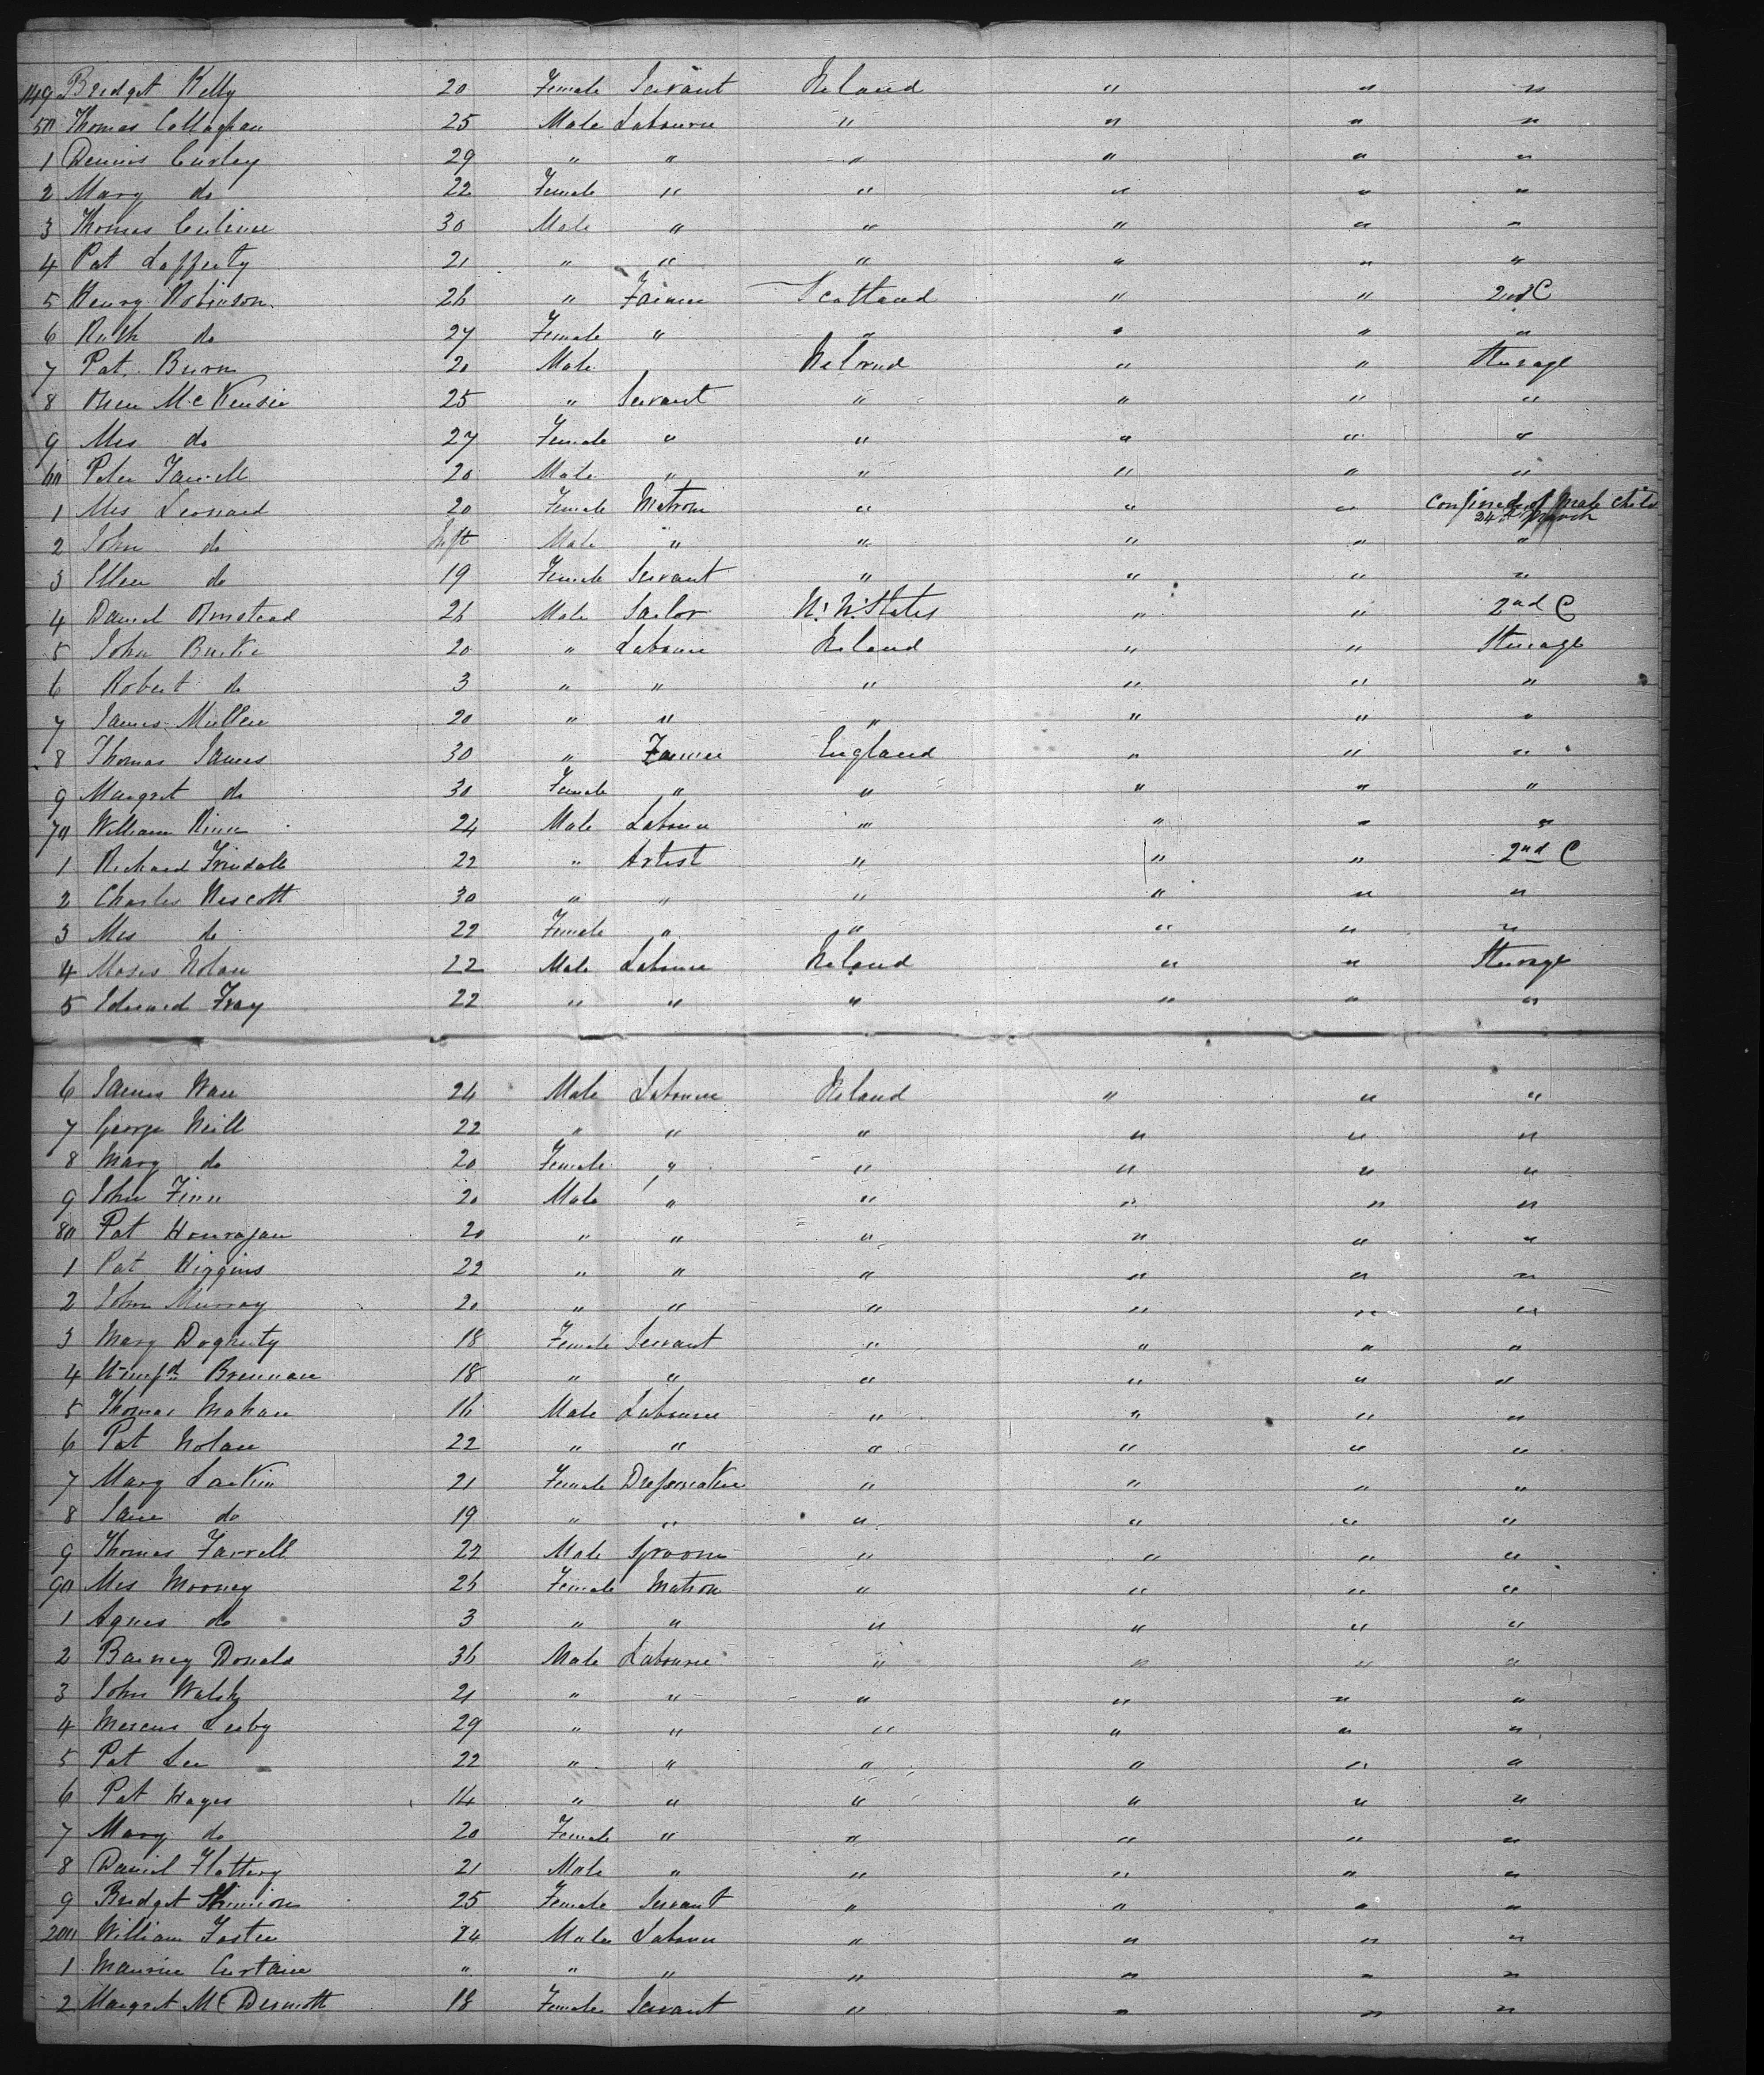 149 Bridget Kelly 20 Female Servant Ireland " " "
50 Thomas Callaghan 25 Male Labourer " " " "
1 Dennis Curley 29 " " " " " "
2 Mary do 22 Female " " " " "
3 Thomas 30 Male " " " " "
4 Pat Lafferty 21 " " " " " "
5 Henry Robinson 26 " Farmer Scotland " " 2nd C
6 Ruth do 27 Female " " " " "
7 Pat Burn 20 Male Ireland " " Steerage
8 Owen McKensie 25 " Servant " " " "
9 Mrs do 27 Female " " " " "
60 Peter Farrell 20 Male " " " " "
1 Mrs Leonard 20 Female Matron " " " Confined of Male Child 24th March
2 John do Inft Male " " " " "
3 Ellen do 19 Female Servant " " " "
4 Daniel Olmstead 26 Male Sailor U. N. States " " 2nd C
5 John Burke 20 " Labourer Ireland " " Steerage
6 Robert do 3 " " " " " "
7 James Mullen 20 " " " " " "
8 Thomas James 30 " Farmer England " " "
9 Margret do 30 Female " " " " "
70 William 24 Male Labourer " " " "
1 Richard Trindall 22 " Artist " " " 2nd C
2 Charles Wescott 30 " " " " " "
3 Mrs do 22 Female " " " " "
4 Moses Nolan 22 Male Labourer Ireland " " Steerage
5 Edward Fray 22 " " " " " "
6 James 24 Male Labourer Ireland " " "
7 George Neill 22 " " " " " "
8 Mary do 20 Female " " " " "
9 John Finn 20 Male " " " " "
80 Pat Hourajan 20 " " " " " "
1 Pat Higgins 22 " " " " " "
2 John Murray 20 " " " " " "
3 Mary Dogherty 18 Female Servant " " " "
4 Brennan 18 " " " " " "
5 Thomas Mahan 16 Male Labourer " " " "
6 Pat Nolan 22 " " " " " "
7 Mary Larkin 21 Female Dressmaker " " " "
8 Jane do 19 " " " " " "
9 Thomas Farrell 22 Male Groom " " " "
90 Mrs Mooney 26 Female Matron " " " "
1 Agnes do 3 " " " " " "
2 Barney Donald 36 Male Labourer " " " "
3 John Walsh 21 " " " " " "
4 Leiby 29 " " " " " "
5 Pat Lee 22 " " " " " "
6 Pat Hayes 14 " " " " " "
7 Mary do 20 Female " " " " "
8 Daniel Flattery 21 Male " " " " "
9 Bridget 25 Female Servant " " " "
200 William Foster 24 Male Labourer " " " "
1 Maurice Curtain " " " " " " "
2 Margret McDermott 18 Female Servant " " " "